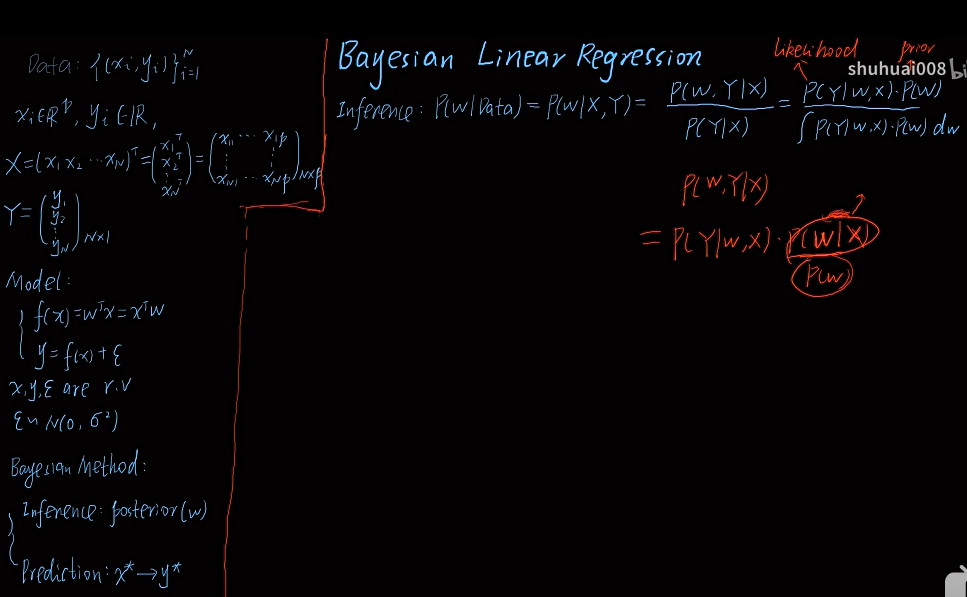 Data: {(xi, yi)}_{i=1}^{N}
xi ∈ ℝ^p, yi ∈ ℝ,
X = (x1 x2 ⋯ xN)^T = (x1^T x2^T ⋮ xN^T) = (x11 ⋯ x1p ⋮ ⋮ xN1 ⋯ xNp)_{N×p}
Y = (y1 y2 ⋮ yN)_{N×1}
Model:
{ f(x) = w^T x = x^T w
y = f(x) + ε
x, y, ε are r.v
ε ~ N(0, σ²)
Bayesian Method:
{ Inference: posterior(w)
Prediction: x* → y*
Bayesian Linear Regression
likelihood prior
shuhuai008 bi
Inference: P(w|Data) = P(w|X, Y) = P(w, Y|X) / P(Y|X) = P(Y|w, X)·P(w) / ∫ P(Y|w, X)·P(w) dw
P(w, Y|X)
= P(Y|w, X) · P(w|X)
P(w)